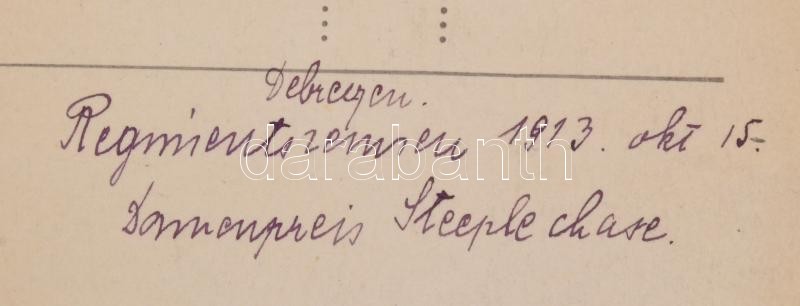 Debreczen.
Regimentsrennen 1913. okt 15.
Damenpreis Steeple chase.
darabanth